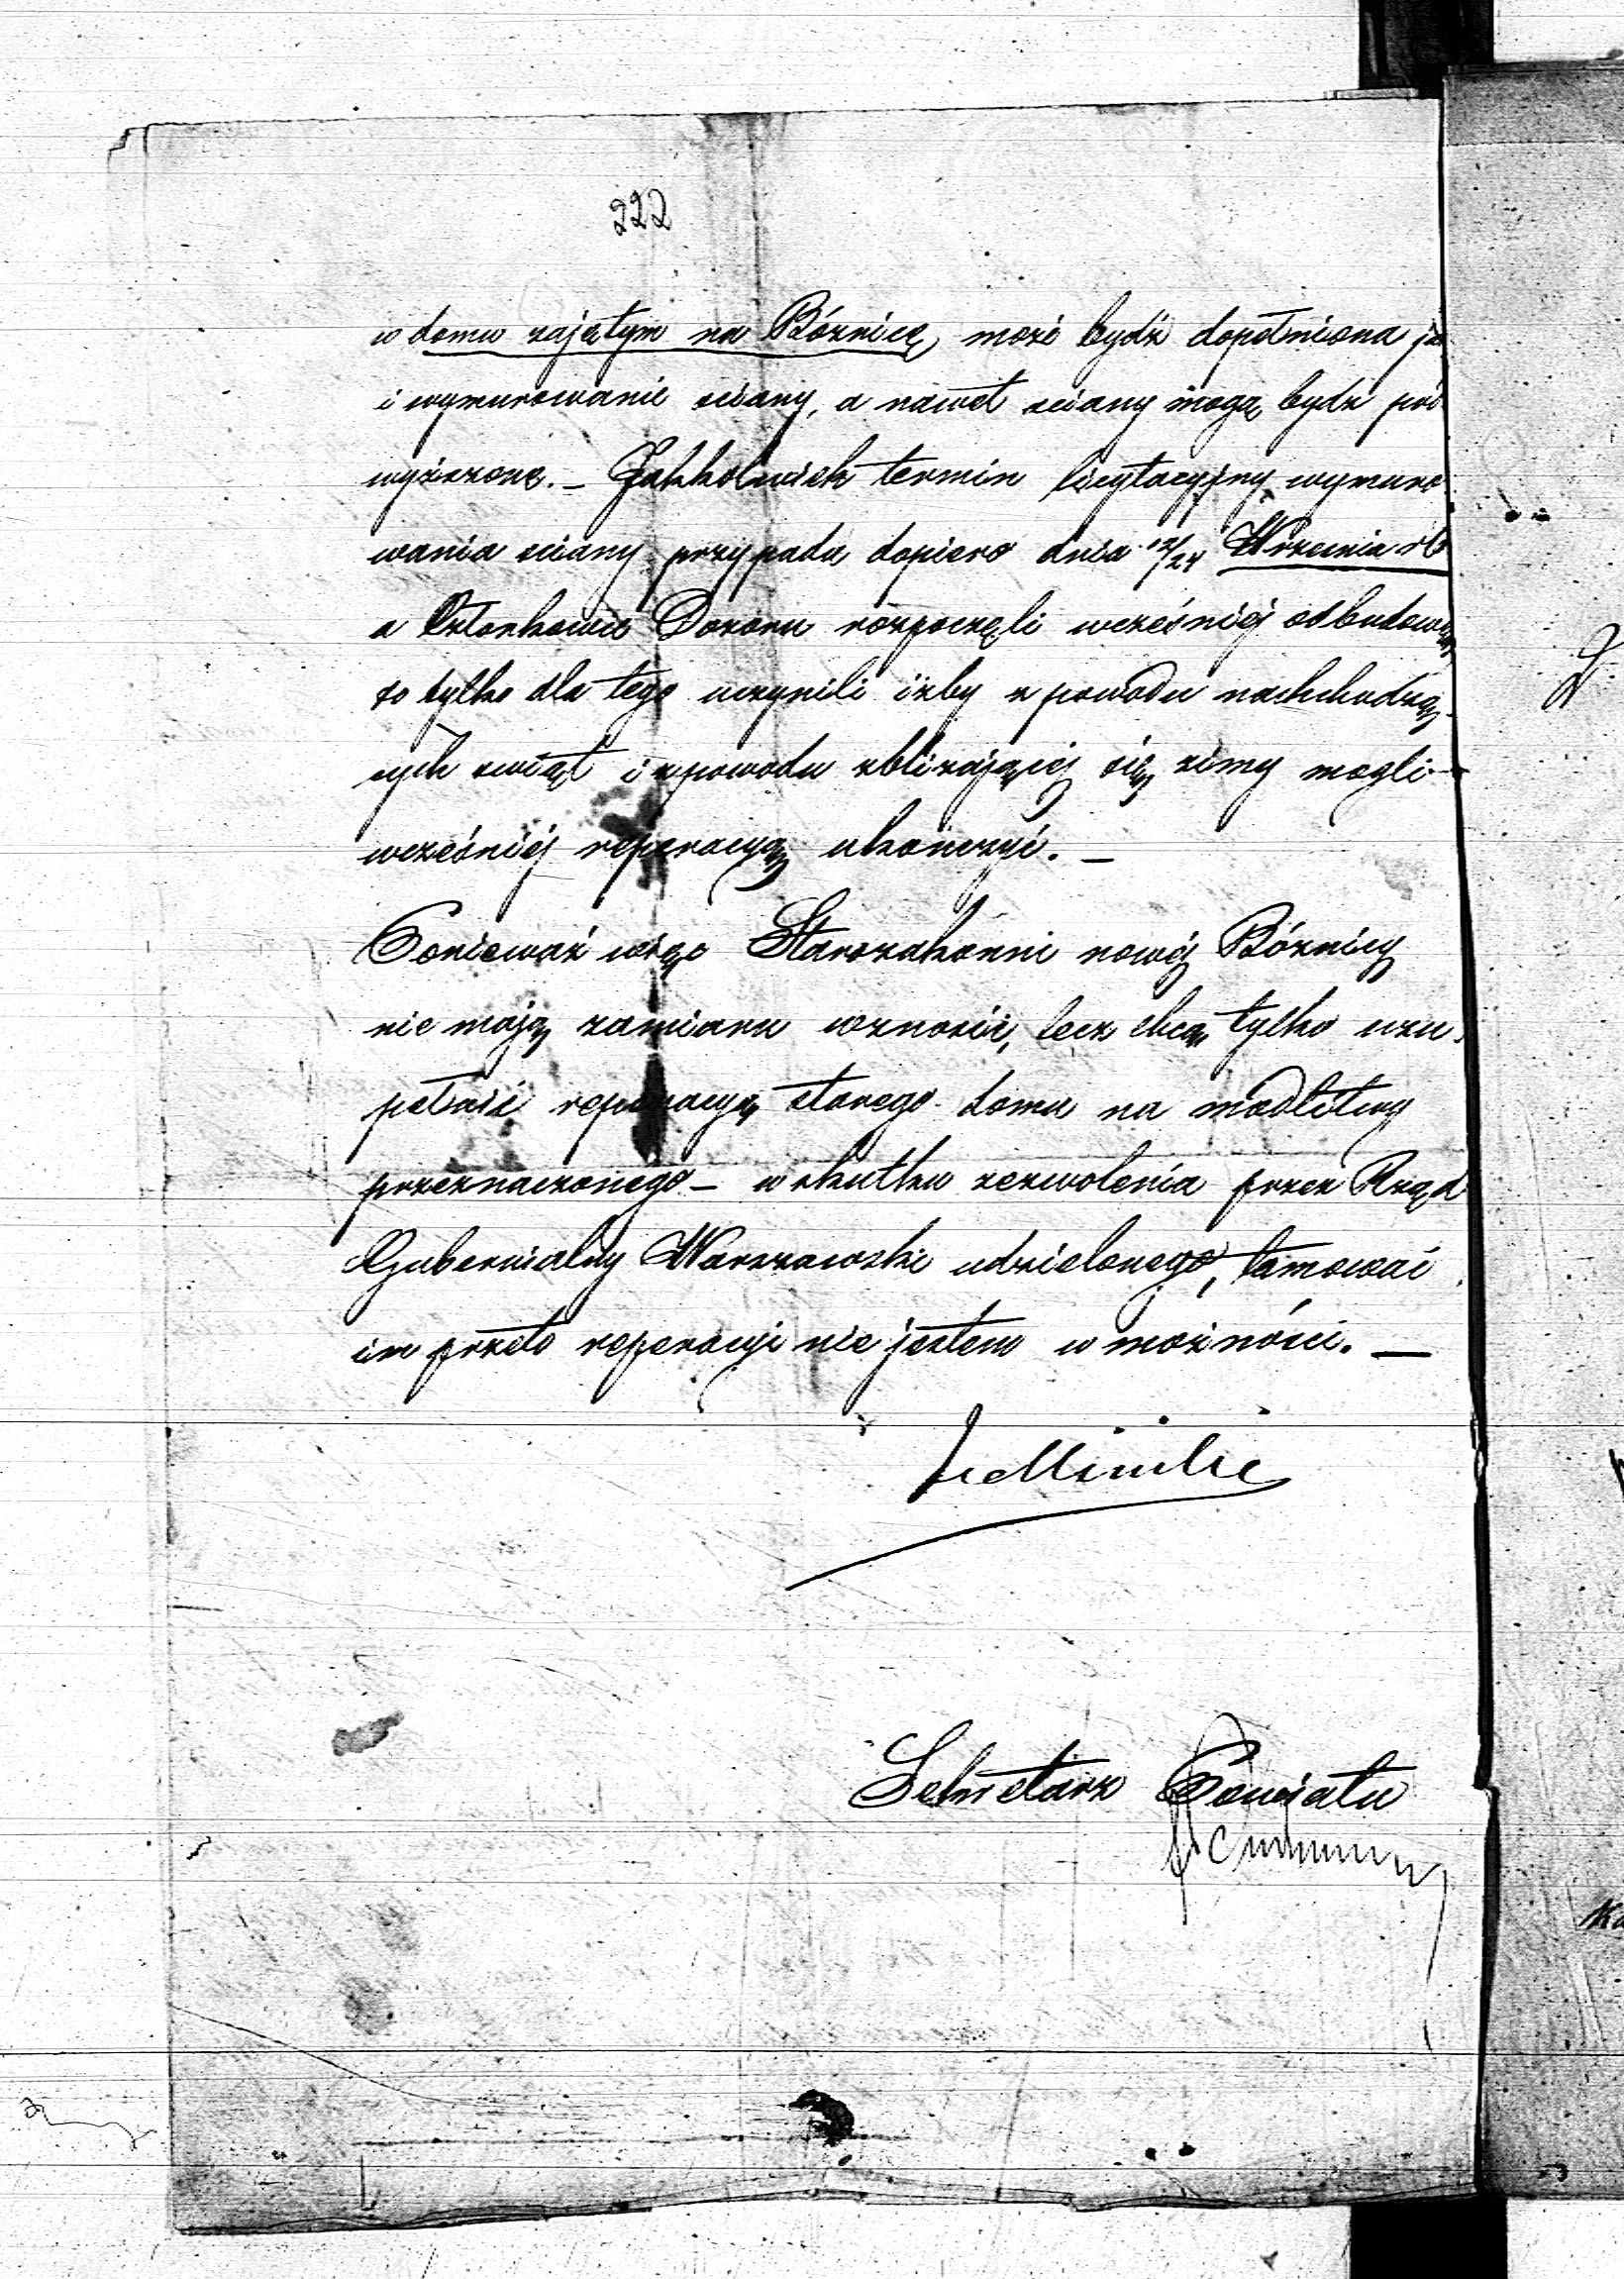 222
w domu zajętym na Bóżnicę, może bydź dopełniona ja
i wymurowanie sciany, a nawet sciany mogą bydź pod
wyższone. – Jakkolwiek termin licytacyjny wymuro
wania sciany przypada dopiero dnia 12/24 Wrzesnia rb
a Członkowie Dozoru rozpoczęli wcześniéj odbudowę,
to tylko dla tego uczynili iżby z powodu nadchodzą-
cych swiąt i z powodu zbliżającéj się zimy mogli
wcześniéj reperacyą ukończyć. –
Ponieważ więc Starozakonni nowéj Bóżnicy
nie mają zamiaru wznosić, lecz chcą tylko uzu-
pełnić reperacyą starego domu na modlitwy
przeznaczonego – w skutku zezwolenia przez Rząd
Gubernialny Warszawski udzielonego, tamować
im przeto reperacyi nie jestem w możności. –
Sekretarz Powiatu